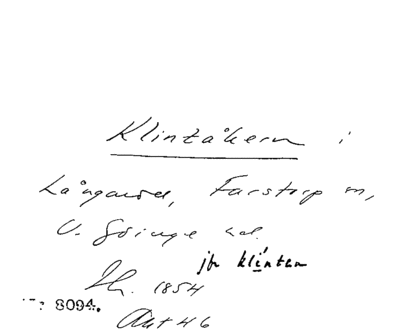 Klintåkern i
Långaröd, Farstorp sn,
V. Göinge hd.
jfr klinten
Sk. 1854
8094.
Akt 46